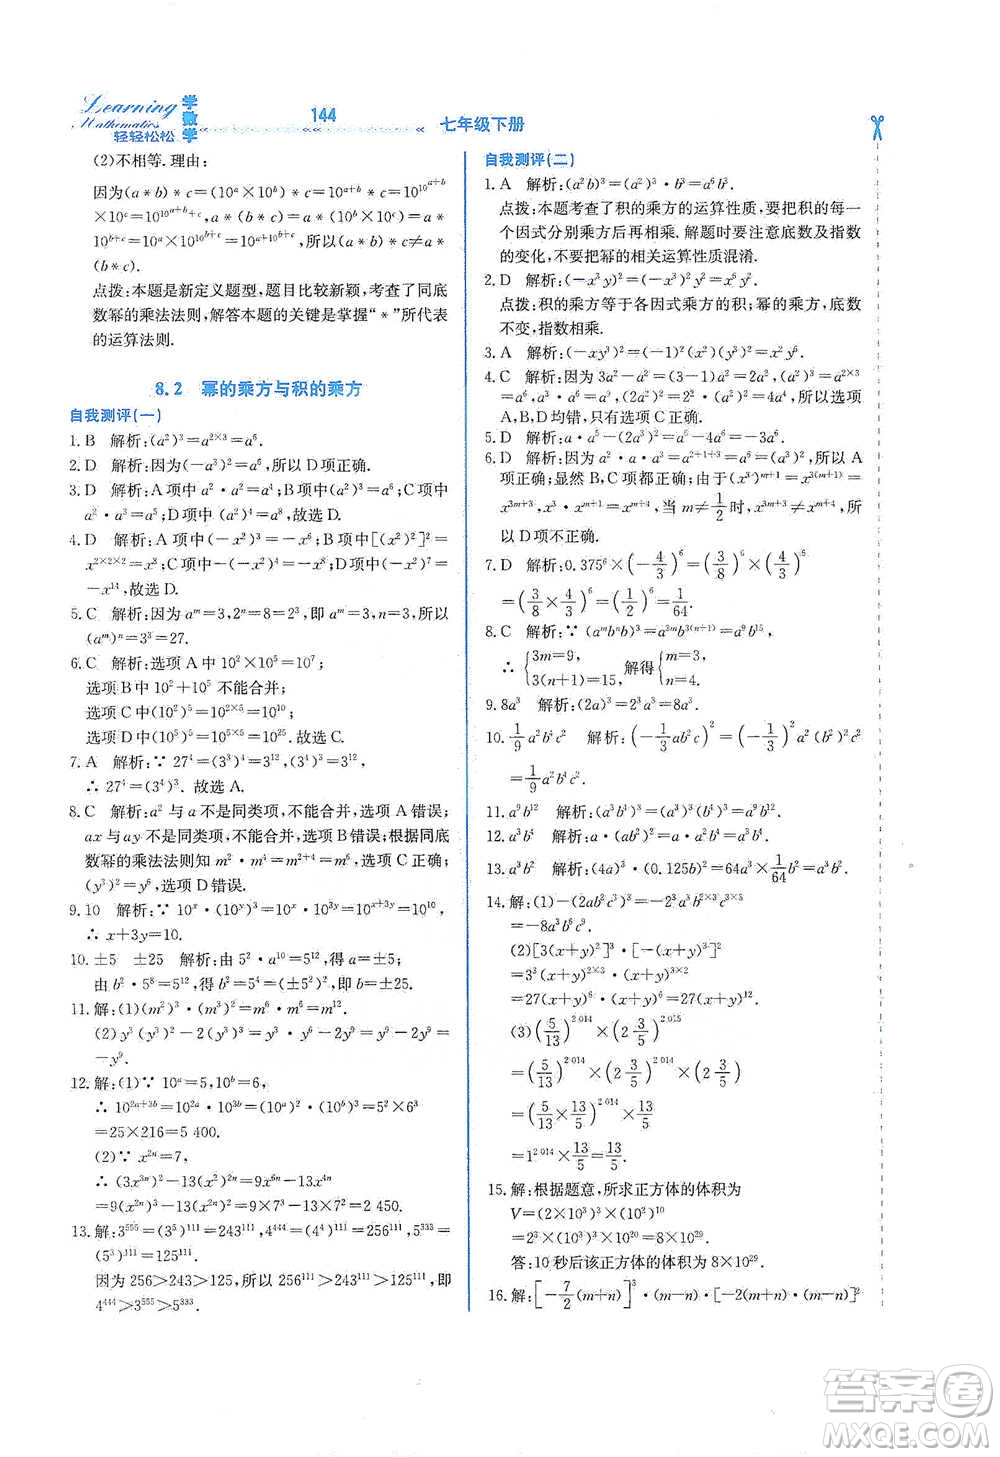 Learning
Mathematics
学数学
轻轻松松
144
七年级下册
(2)不相等. 理由:
因为(a * b) * c=(10ᵃ×10ᵇ) * c=10^(10^(a+b))
×10ᶜ=10^(10^(a+b)+c), a * (b * c)=a * (10ᵇ×10ᶜ)=10ᵃ
×10^(10^(b+c))=10^(a+10^(b+c)), 所以(a * b) * c≠a * (b
* c).
点拨:本题是新定义题型,题目比较新颖,考查了同底
数幂的乘法法则,解答本题的关键是掌握“*”所代表
的运算法则.
8.2 幂的乘方与积的乘方
自我测评(一)
1. B 解析:(a²)³=a^(2×3)=a⁶.
2. D 解析:因为(-a³)²=a⁶,所以D项正确.
3. D 解析:A项中a²·a²=a⁴;B项中a²·a⁴=a⁶;C项
中a²·a³=a⁵;D项中(a²)²=a⁴,故选D.
4. D 解析:A项中(-a²)⁴=a⁸;B项中[(a²)²]²=
a^(2×2×2)=a⁸;C项中(-a²)⁴=a⁸;D项中(-a²)⁷=
-a¹⁴,故选D.
5. C 解析:因为aᵐ=3,2ⁿ=8=2³,即aᵐ=3,n=3,所以
(aᵐ)ⁿ=3³=27.
6. C 解析:选项A中10²×10⁵=10⁷;
选项B中10²+10⁵不能合并;
选项C中(10²)⁵=10^(2×5)=10¹⁰;
选项D中(10⁵)⁵=10^(5×5)=10²⁵. 故选C.
7. A 解析:∵27⁴=(3³)⁴=3¹²,(3⁴)³=3¹²,
∴27⁴=(3⁴)³. 故选A.
8. C 解析:a²与a不是同类项,不能合并,选项A错误;
ax与ay不是同类项,不能合并,选项B错误;根据同底
数幂的乘法法则知m²·m⁴=m^(2+4)=m⁶,选项C正确;
(y³)²=y⁶,选项D错误.
9. 10 解析:∵10ˣ·(10ʸ)³=10ˣ·10^(3y)=10^(x+3y)=10¹⁰,
∴x+3y=10.
10. ±5 ±25 解析:由5²·a¹⁰=5¹²,得a=±5;
由b²·5⁸=5¹²,得b²=5⁴=(±5²)²,得b=±25.
11. 解:(1)(m²)³·(m³)²=m⁶·m⁶=m¹².
(2)y³(y³)²-2(y³)³=y³·y⁶-2y⁹=y⁹-2y⁹=
-y⁹.
12. 解:(1)∵10ᵃ=5,10ᵇ=6,
∴10^(2a+3b)=10^(2a)·10^(3b)=(10ᵃ)²·(10ᵇ)³=5²×6³
=25×216=5 400.
(2)∵x^(2n)=7,
∴(3x^(3n))²-13(x²)^(2n)=9x^(6n)-13x^(4n)
=9(x^(2n))³-13(x^(2n))²=9×7³-13×7²=2 450.
13. 解:3⁵⁵⁵=(3⁵)¹¹¹=243¹¹¹,4⁴⁴⁴=(4⁴)¹¹¹=256¹¹¹,5³³³=
(5³)¹¹¹=125¹¹¹.
因为256>243>125,所以256¹¹¹>243¹¹¹>125¹¹¹,即
4⁴⁴⁴>3⁵⁵⁵>5³³³.
自我测评(二)
1. A 解析:(a²b)³=(a²)³·b³=a⁶b³.
点拨:本题考查了积的乘方的运算性质,要把积的每一
个因式分别乘方后再相乘. 解题时要注意底数及指数
的变化,不要把幂的相关运算性质混淆.
2. D 解析:(-x³y)²=(-x³)²·y²=x⁶y².
点拨:积的乘方等于各因式乘方的积;幂的乘方,底数
不变,指数相乘.
3. A 解析:(-xy³)²=(-1)²(x)²(y³)²=x²y⁶.
4. C 解析:因为3a²-a²=2a²,(a²)³=a^(2×3)
=a⁶,a²·a³=a⁵,(2a²)²=2²·a⁴=4a⁴,所以选项
A,B,D均错,只有选项C正确.
5. D 解析:a·a⁵-(2a³)²=a⁶-4a⁶=-3a⁶.
6. D 解析:因为a²·a·a³=a^(2+1+3)=a⁶,所以A
正确;易知B,C项正确;由于(x³)^(m+1)=x^(3(m+1))=
x^(3m+3),x³·x^(m+1)=x^(3+m+1)=x^(m+4),当m≠1/2时,x^(3m+3)≠x^(m+4),所
以D项不正确.
7. D 解析:0.375⁶×(-4/3)⁶=(3/8)⁶×(4/3)⁶
=(3/8×4/3)⁶=(1/2)⁶=1/64.
8. C 解析:∵(aᵐbⁿb)³=a^(3m)b^(3(n+1))=a⁹b¹⁵,
∴{3m=9, 3(n+1)=15, 解得{m=3, n=4.
9. 8a³ 解析:(2a)³=2³a³=8a³.
10. 1/9a²b⁴c² 解析:(-1/3ab²c)²=(-1/3)²a²(b²)²c²
=1/9a²b⁴c².
11. a⁹b¹² 解析:(a³b⁴)³=(a³)³(b⁴)³=a⁹b¹².
12. a³b⁴ 解析:a·(ab²)²=a·a²b⁴=a³b⁴.
13. a³b⁶ 解析:(4a)³·(0.125b³)²=64a³×1/64b⁶=a³b⁶.
14. 解:(1)-(2ab²c³)³=-2³a³b^(2×3)c^(3×3)
=-8a³b⁶c⁹.
(2)[3(x+y)²]³·[-(x+y)³]²
=3³(x+y)^(2×3)·(x+y)^(3×2)
=27(x+y)⁶·(x+y)⁶=27(x+y)¹².
(3)(5/13)^2 014×(2 3/5)^2 015
=(5/13)^2 014×(2 3/5)^2 014×(2 3/5)
=(5/13×13/5)^2 014×13/5
=1^2 014×13/5=13/5.
15. 解:根据题意,所求正方体的体积为
V=(2×10³)³×(10²)¹⁰
=2³×10⁹×10²⁰=8×10²⁹.
答:10秒后该正方体的体积为8×10²⁹.
16. 解:[-7/2(m+n)]³·(m-n)·[-2(m+n)(m-n)]²
答案卷
MXEQE.COM